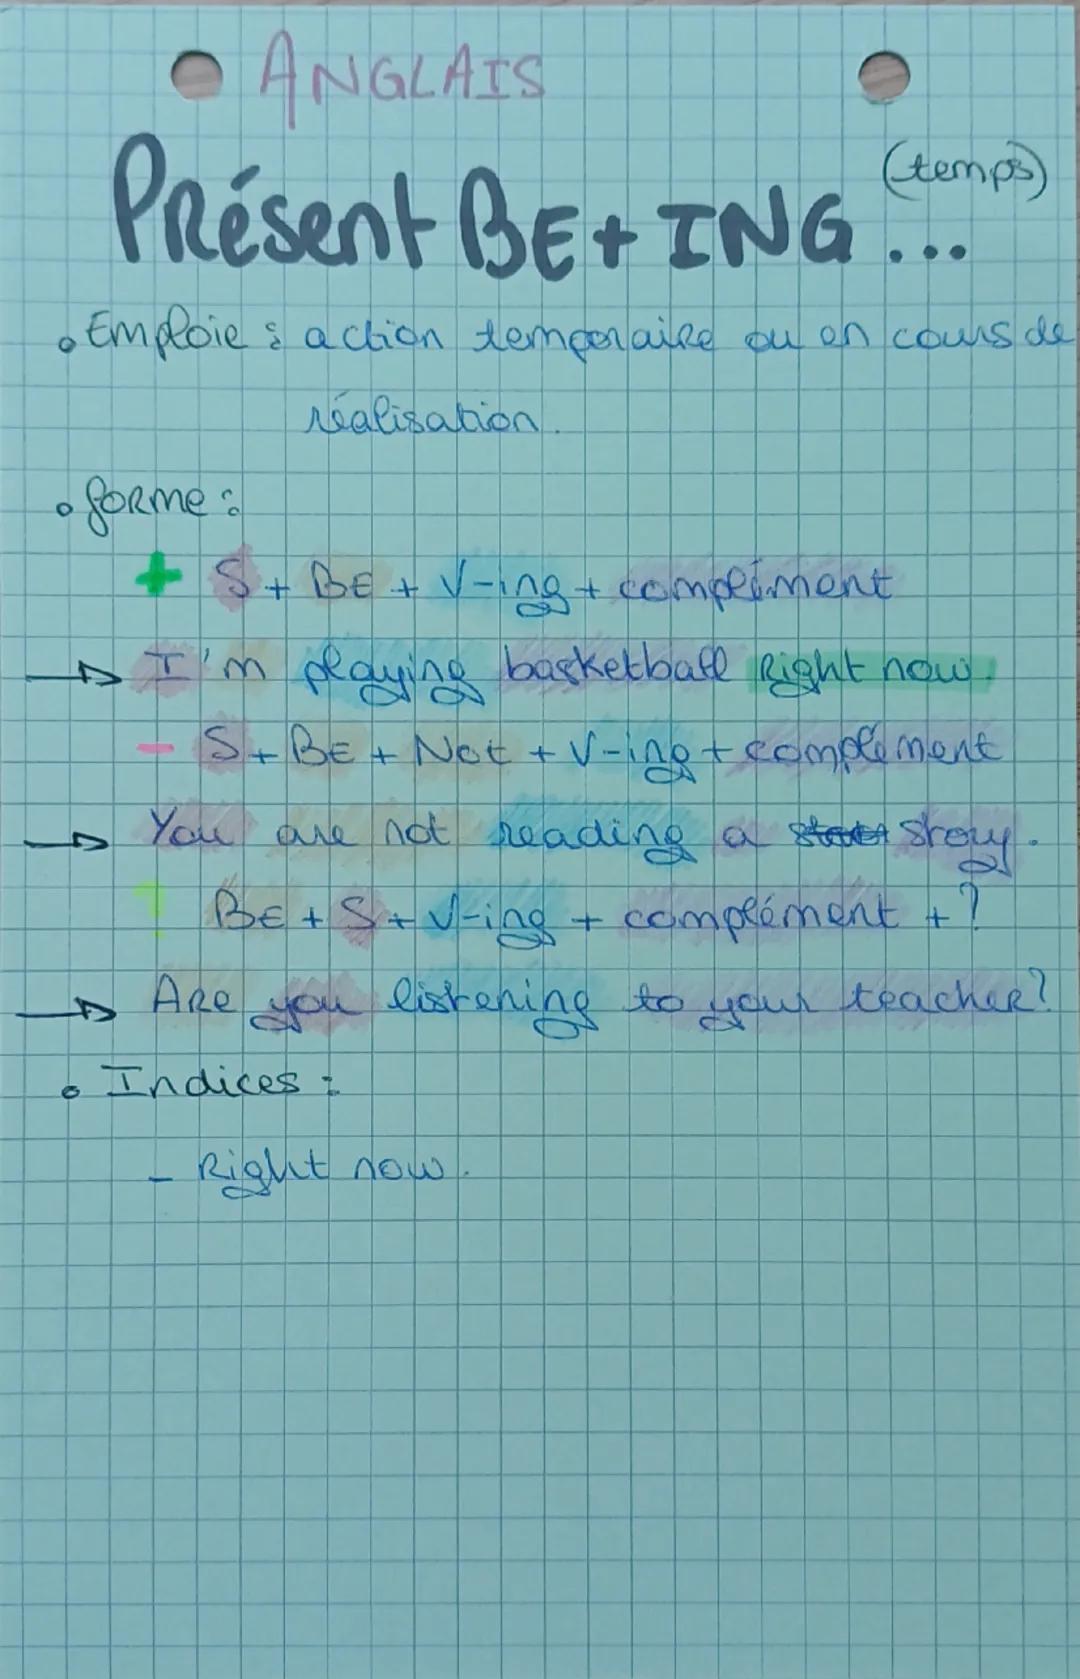 ANGLAIS
(temps)
Présent BE+ING...
• Emploie : action temporaire ou en cours de
réalisation.
• forme :
+ S + BE + V-ing + complément
→ I'm playing basketball Right now.
- S + BE + Not + V-ing + complément
→ You are not reading a story.
? BE + S + V-ing + complément + ?
→ ARE you listening to your teacher?
• Indices :
- Right now.